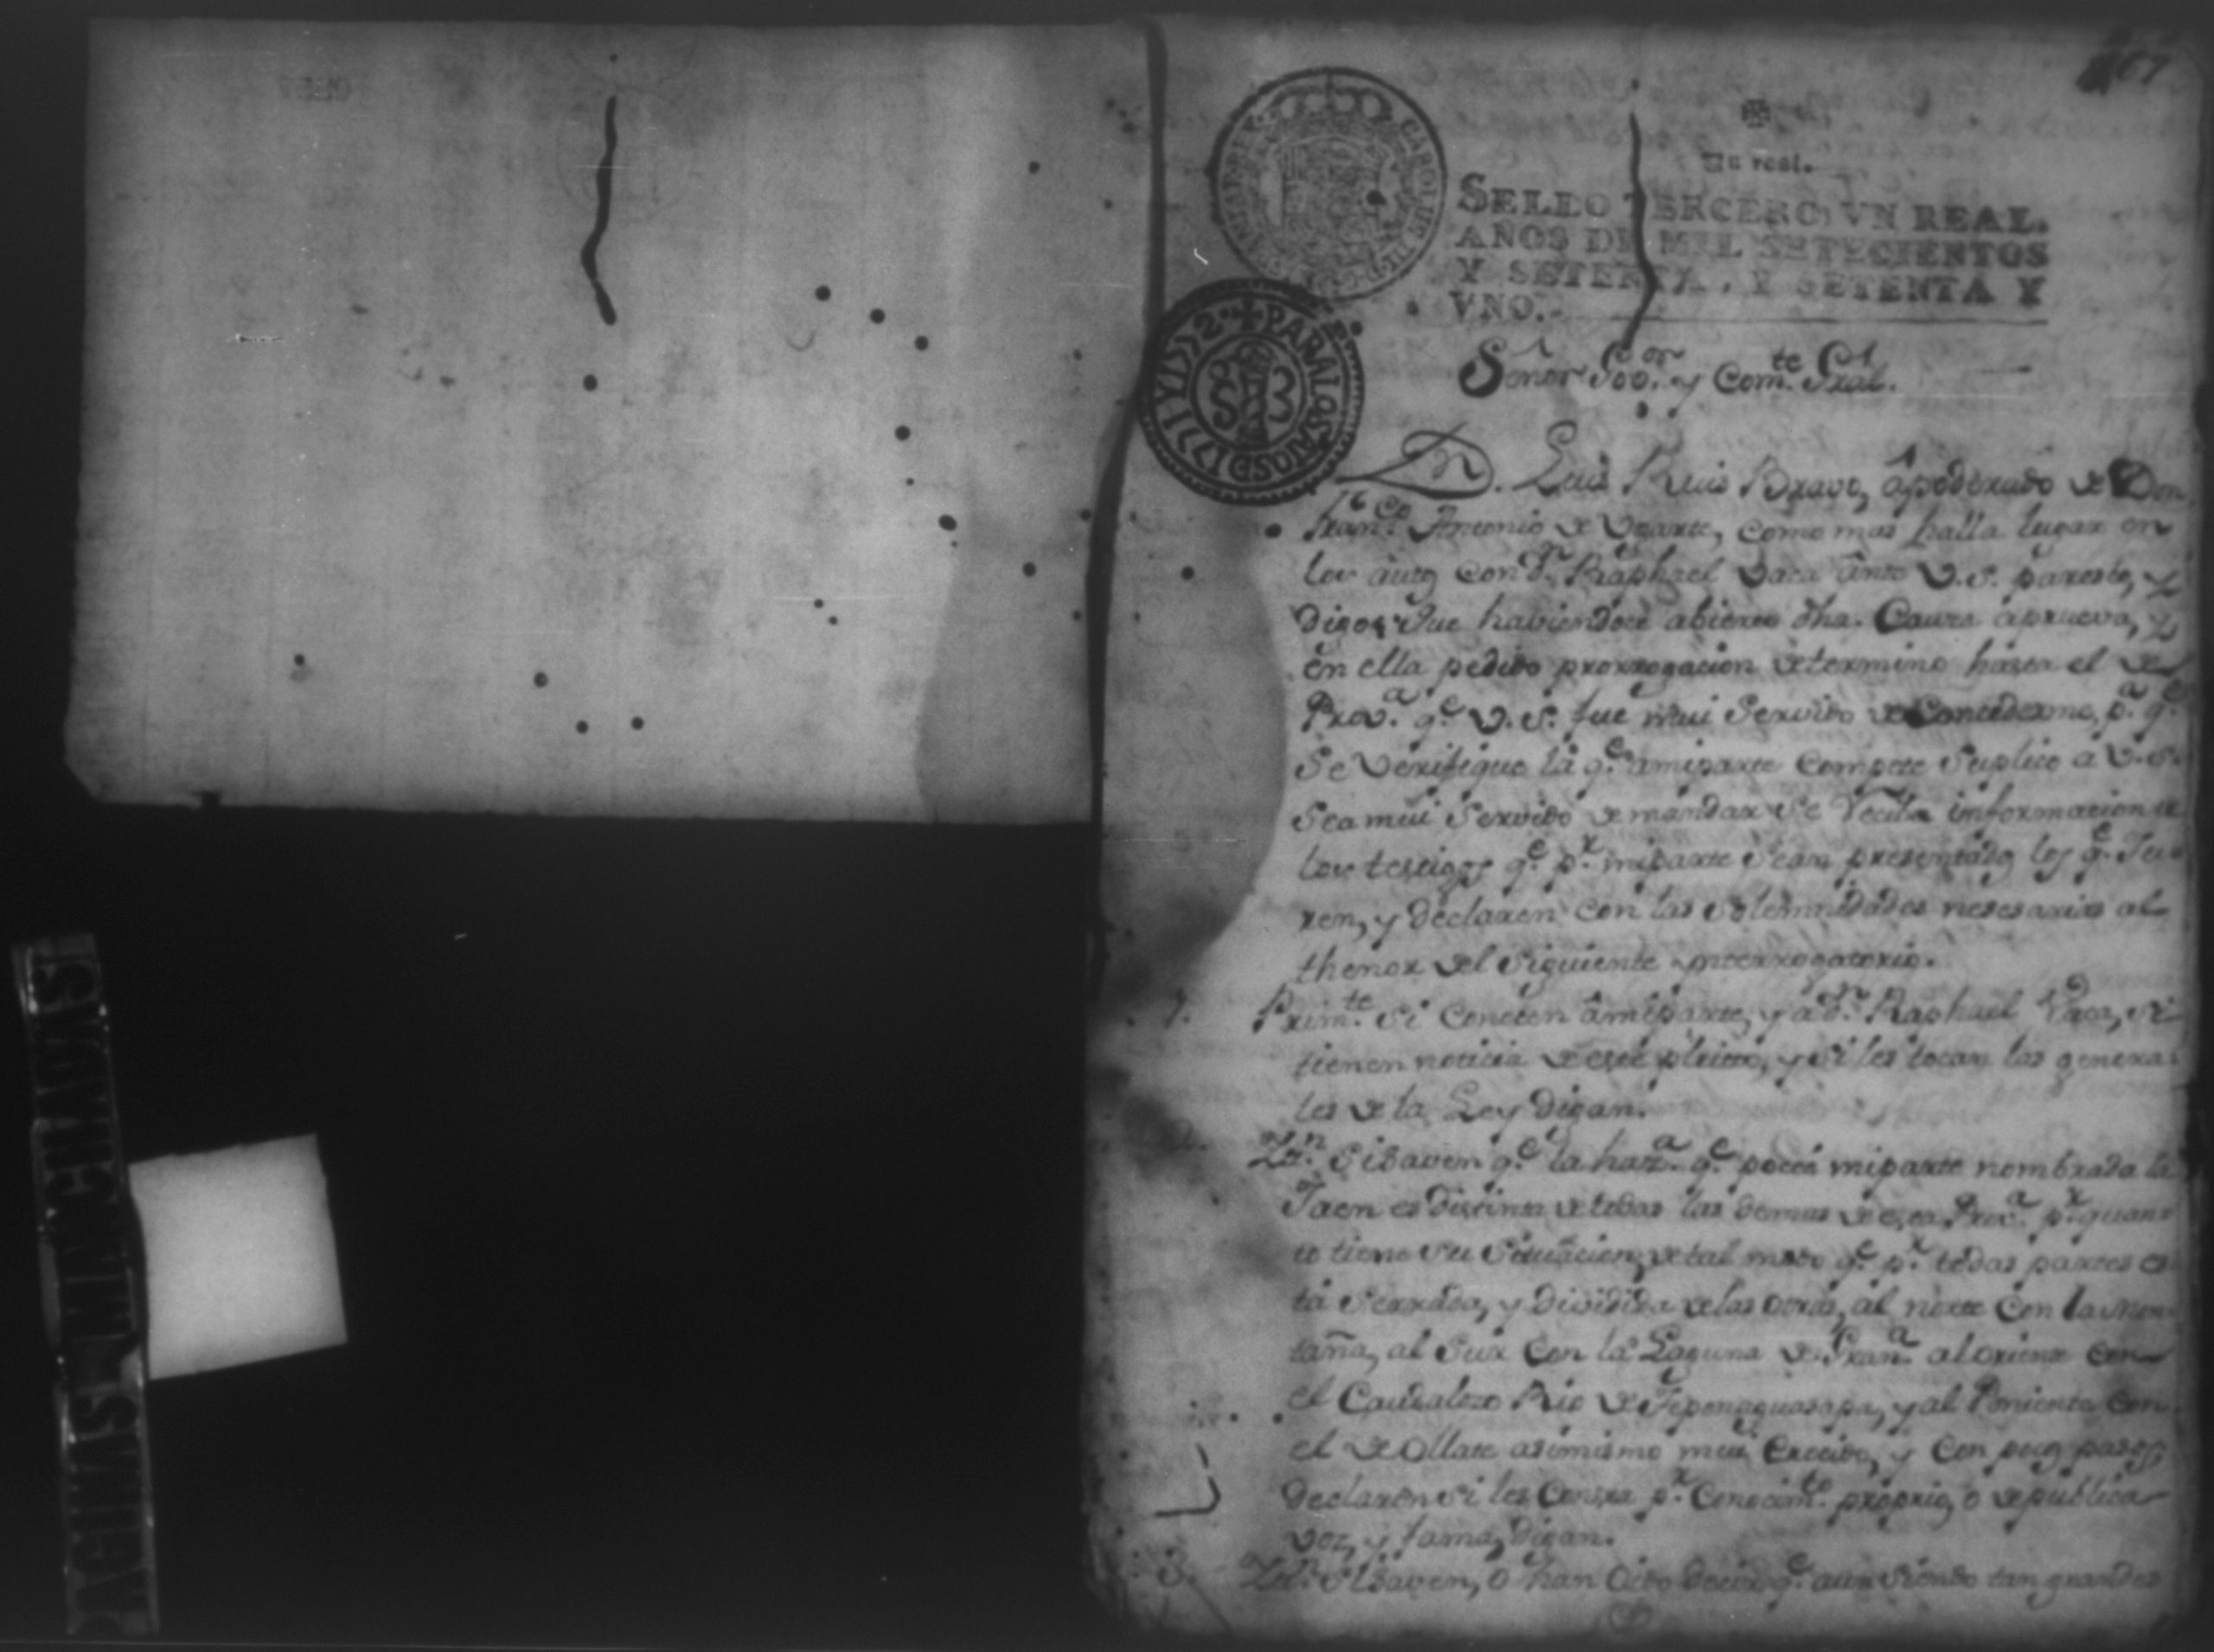 167
Un real.
SELLO TERCERO, VN REAL,
AÑOS DE MIL SETECIENTOS
Y SETENTA, Y SETENTA Y
VNO.
PARA LOS AÑOS D 1771 Y 1772
S 3
Señor Gov.or y Com.te Gral.
D.n Luis Ruis Bravo, apoderado de Don
Fran.co Antonio de Ugarte, como mas halla lugar en
los autos con D.n Raphael Vaca ante V.S. paresco, y
digo: Que haviendose abierto dha. Causa aprueva, y
en ella pedido prorrogacion de termino hasta el de
Prov.a q.e V.S. fue mui Servido de Concederme, p.a q.e
Se Verifique la q.e amiparte Compete Suplico a V.S.
Sea mui Servido de mandar Se Reciba informacion de
los testigos q.e p.r miparte Sean presentados los q.e Ju-
ren, y declaren con las Solemnidades nesesarias al
thenor del Siguiente interrogatorio.
1. Prim.te Si Conocen amiparte, y a D.n Raphael Vaca, Si
tienen noticia de este pleito, y Si les tocan las genera-
les de la Ley digan.
2. Yt.n Si Saven q.e la haz.a q.e poceé miparte nombrada la
Jaen es distinta de todas las demas de esta Prov.a p.r quan-
to tiene Su Situacion de tal modo q.e p.r todas partes es-
tá Serrada, y dividida de las otras, al norte Con la Mon-
taña, al Sur Con la Laguna de Gran.a al oriente Con
el Caudaloso Rio de Teponaguasapa, y al Poniente Con
el de Ollate asimismo mui Crecido, y Con pocos pasos
declaren Si les Consta p.r Conocim.to proprio, o de publica
voz, y fama, digan.
3. Yt.n Si Saven, o han Oido decir q.e aun Siendo tan grandes
PAGINAS MANCHADAS